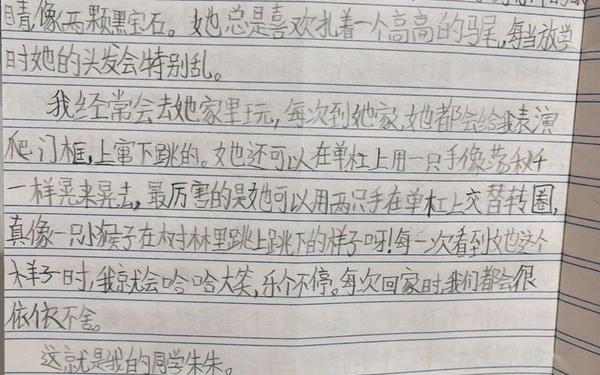 睛像两颗黑宝石。她总是喜欢扎着一个高高的马尾,每当放学
时她的头发会特别乱。
我经常会去她家里玩,每次到她家,她都会给我表演
爬门框,上窜下跳的。她还可以在单杠上用一只手像荡秋千
一样晃来晃去,最厉害的是她可以用两只手在单杠上交替转圈,
真像一只小猴子在树林里跳上跳下的样子呀!每一次看到她这个
样子时,我就会哈哈大笑,乐个不停。每次回家时,我们都会很
依依不舍。
这就是我的同学朱朱。